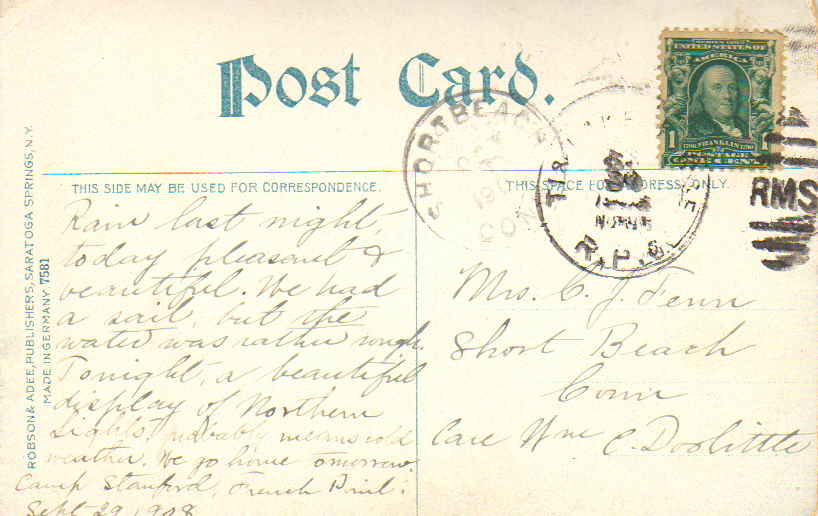 Post Card.
UNITED STATES OF
AMERICA
1
FRANKLIN
POSTAGE
ONE CENT
SHORT BEACH
CONN
R.P.O.
RMS
THIS SIDE MAY BE USED FOR CORRESPONDENCE.
THIS SPACE FOR ADDRESS ONLY.
ROBSON & ADEE, PUBLISHERS, SARATOGA SPRINGS, N.Y.
MADE IN GERMANY 7581
Rain last night,
today pleasant &
beautiful. We had
a sail, but the
water was rather rough.
Tonight, a beautiful
display of Northern
Lights, probably means cold
weather. We go home tomorrow.
Camp Stanford, French Point.
Sept 29, 1908
Mrs. C. J. Fenn
Short Beach
Conn
Care Wm C. Doolittle